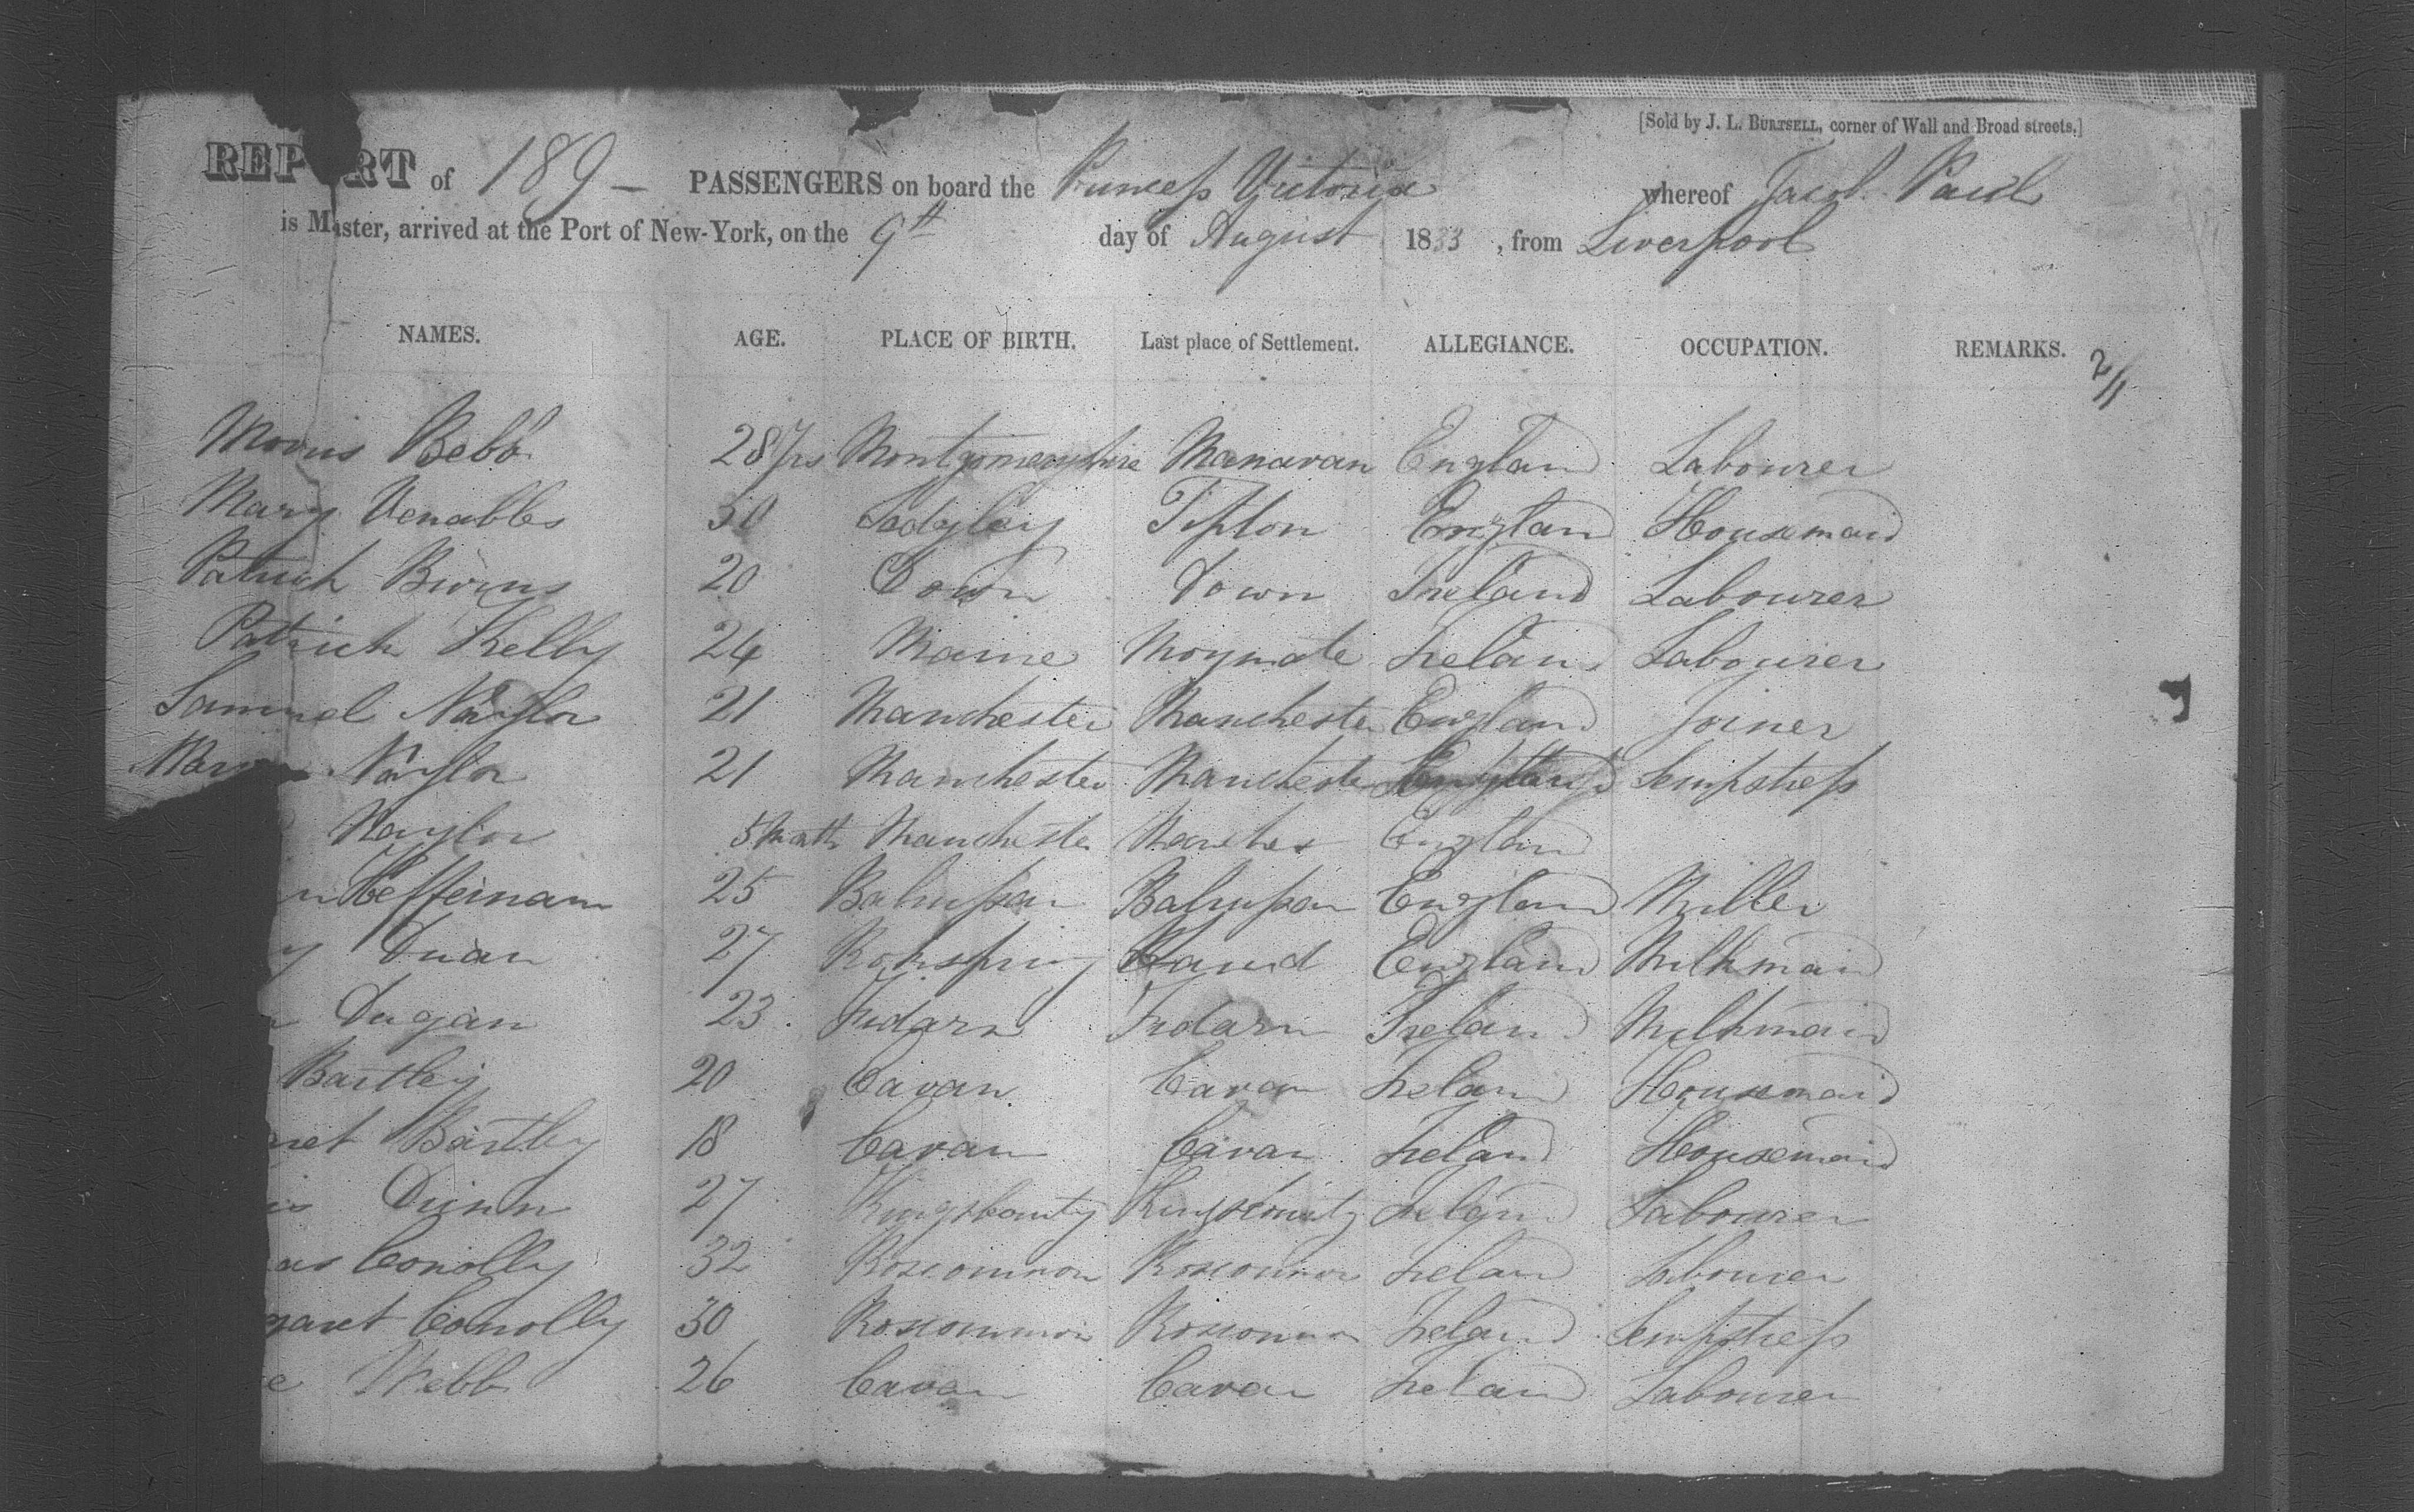 [Sold by J. L. BURTSELL, corner of Wall and Broad streets.]
REPORT of 189 — PASSENGERS on board the Princess Victoria whereof Jacob Paul
is Master, arrived at the Port of New-York, on the 9th day of August 1833, from Liverpool
NAMES. AGE. PLACE OF BIRTH. Last place of Settlement. ALLEGIANCE. OCCUPATION. REMARKS.
2/11
Morris Bebb 28 yrs Montgomeryshire Manavan England Labourer
Mary Venables 30 Sedgley Tipton England Housemaid
Patrick Down Down Ireland Labourer 20
Patrick Kelly 24 Ireland Labourer
Samuel Naylor 21 Manchester Manchester England Joiner
Naylor 21 Manchester Manchester England Sempstress
Naylor 5 Manchester England
Heffernan 25 England Miller
27 England Milkmaid
Dugan 23 Ireland Milkmaid
Bartley 20 Cavan Cavan Ireland Housemaid
Bartley 18 Cavan Cavan Ireland Housemaid
Dunn 27 Kings County Kings County Ireland Labourer
Conolly 32 Roscommon Roscommon Ireland Labourer
Conolly 30 Roscommon Roscommon Ireland Sempstress
Webb 26 Cavan Cavan Ireland Labourer